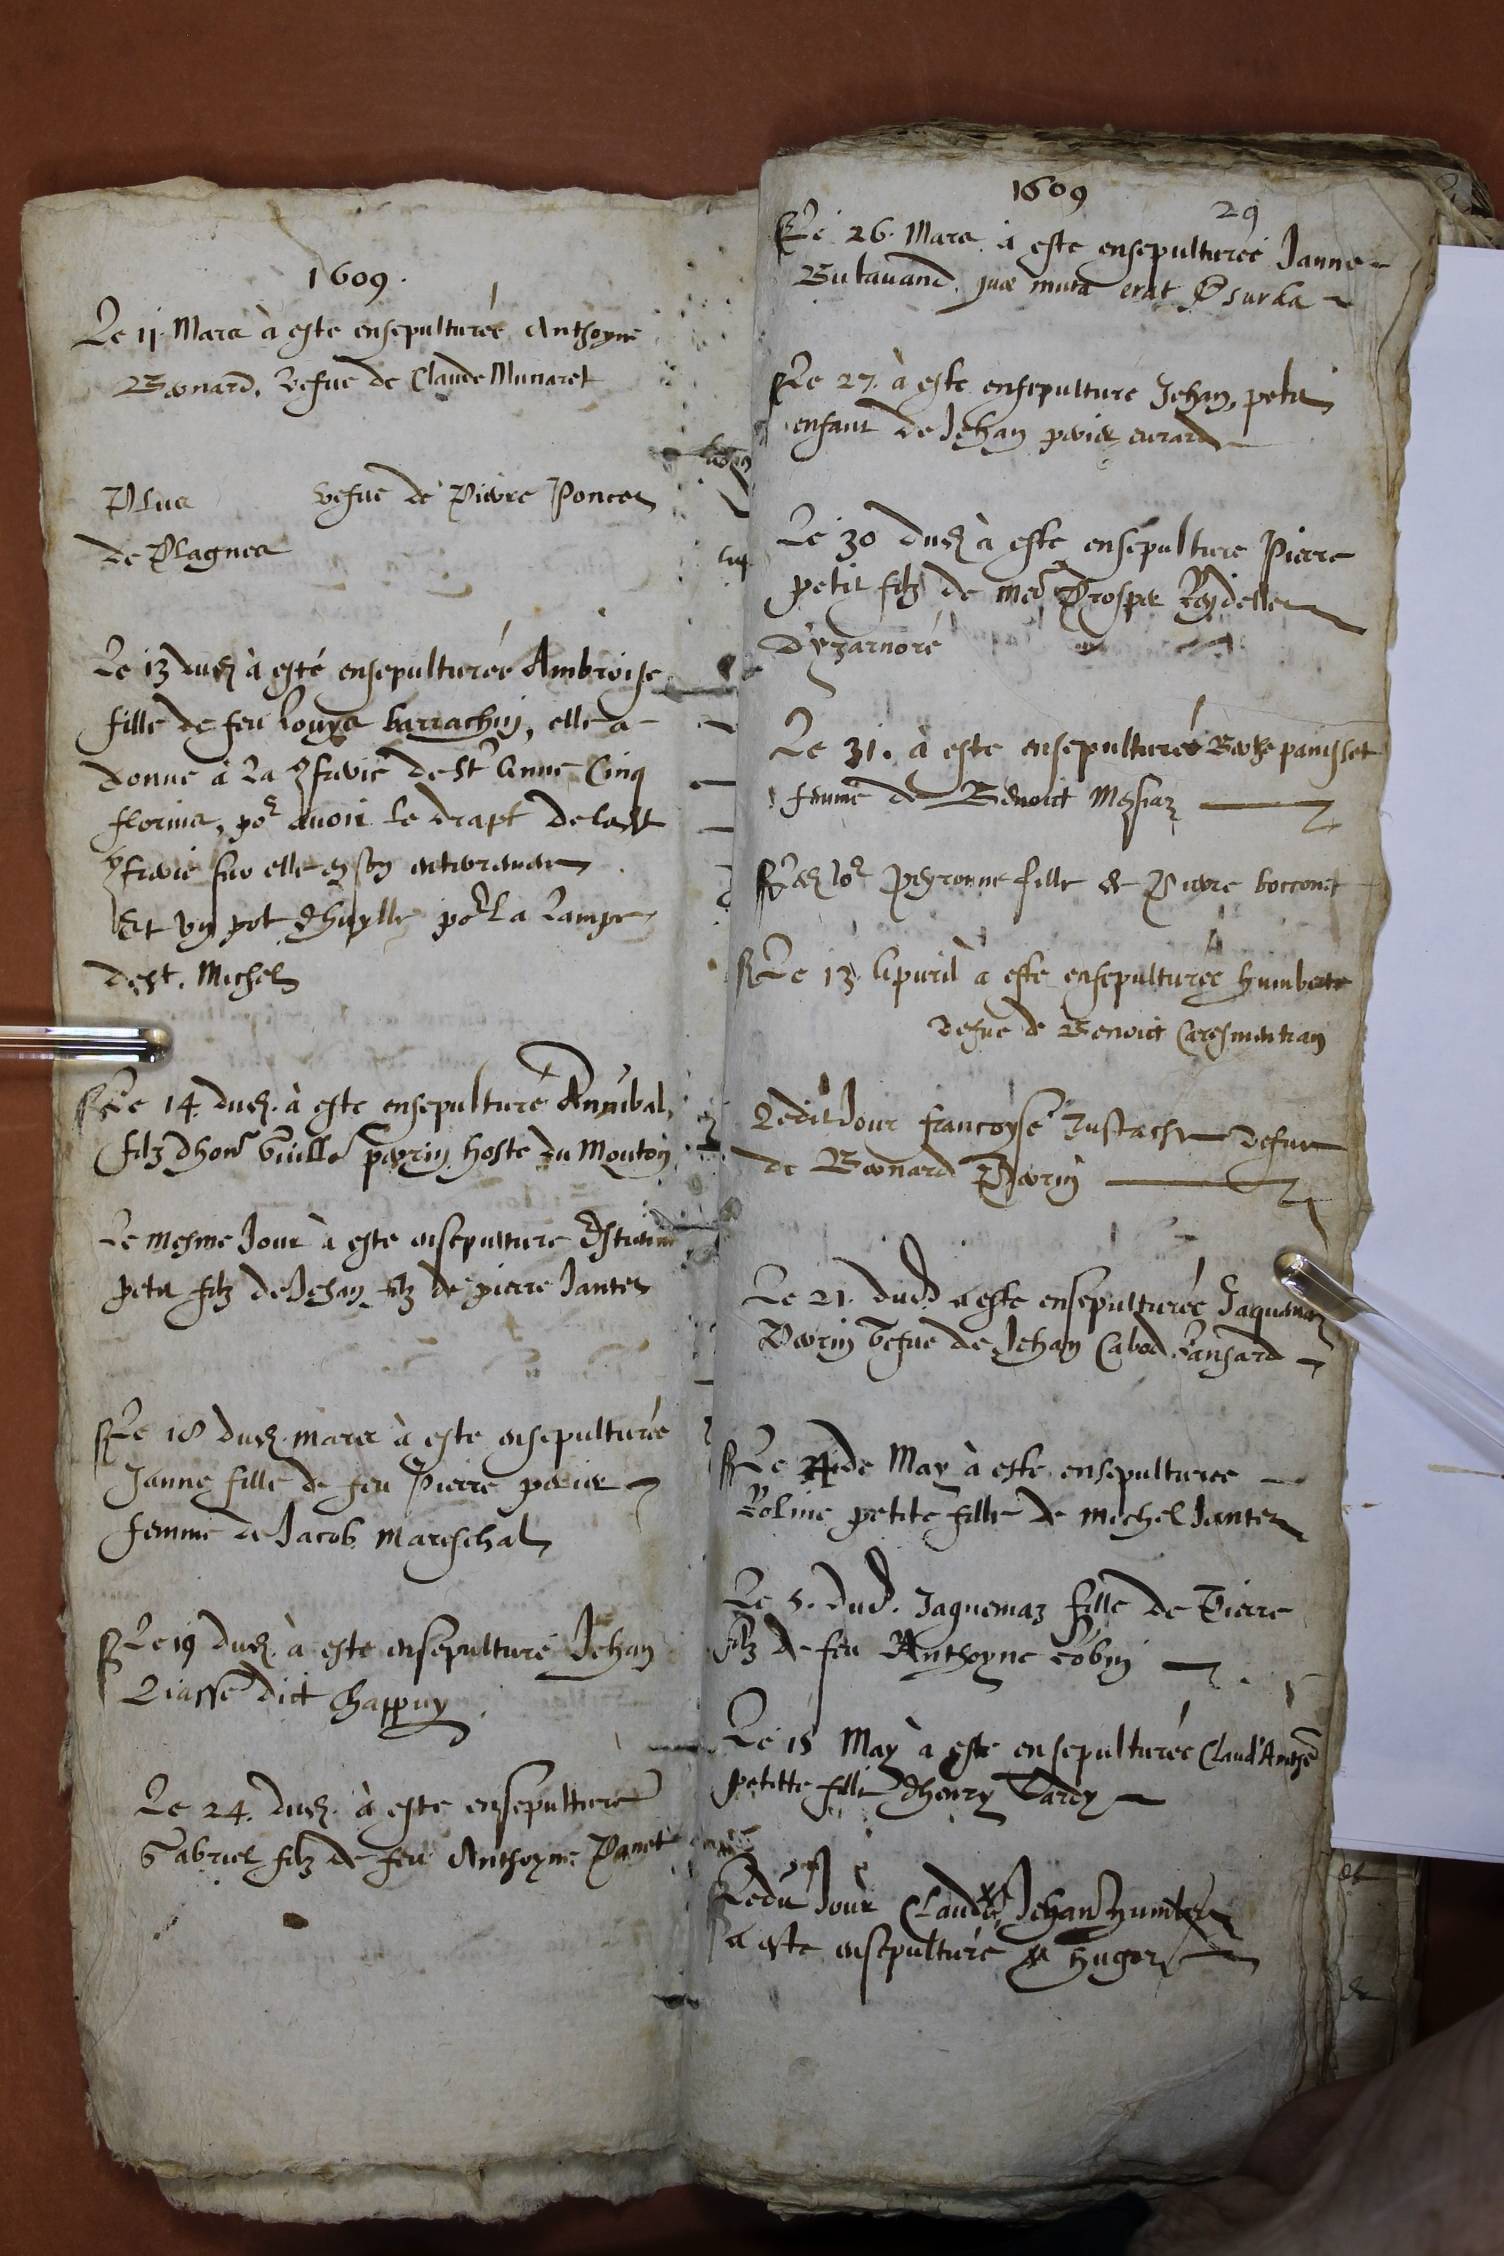 1609.
Le 11. Mars à este ensepulturée Anthoyne
Bernard, vefue de Claude Munaret
Plus vefue de Pierre Poncet
de Plagnes
Le 13 dud. à esté ensepulturée Ambroise
fille de feu Louys barrachin, elle a
donné à la 9frerie de St Anne Cinq
florins, por auoir le drapt de ladt
9frerie sur elle en son enterrement
Et un pot dhuylle por la lampe
de St. Michel
Le 14. dud. à este ensepulturé Annibal,
filz dhonr Guille perrin hoste du Mouton
Le mesme Jour à este ensepulture
petit filz de Jehan filz de pierre Jantet
Le 18 dud. mars à este ensepulturée
Janne fille de feu Pierre perier
femme de Jacob Mareschal
Le 19 dud. à este ensepulturé Jehan
Liasse dict Chappuy
Le 24. dud. à este ensepulture
Gabriel filz de feu Anthoyne Panet
1609
29
Le 26. Mars à este ensepulturée Janne
Butauand. quæ muta erat & surda
Le 27. à este ensepulture Jehan, petit
enfant de Jehan perier
Le 30 dud. à este ensepulture Pierre
petit filz de me Prosper Reydellet
d'yzarnore
Le 31. à este ensepulturée panisset
femme de Benoict Messiaz
Peyronne fille de Pierre boccond
Le 13. Apuril à este ensepulturée humberte
vefue de Benoict Caresmentran
Ledit Jour francoyse Eustache vefue
de Bernard Perrin
Le 21. dud. a este ensepulturée Jaquemaz
Perrin vefue de Jehan Cabod Lansard
Le 4 de May à este ensepulturee
Roline petite fille de michel Jantet
Le 5. dud. Jaquemaz fille de Pierre
filz de feu Anthoyne Gobin
Le 15 May à este ensepulturée Claud'Anthe
petitte fille dhenry Tardy
Ledit Jour Claude Jehan humbert
a este ensepulturé